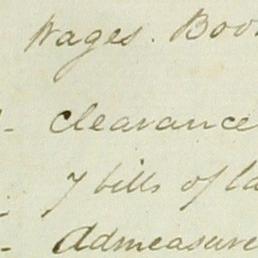 Wages. Boo
- Clearance
7 bills of la
- Admeasure